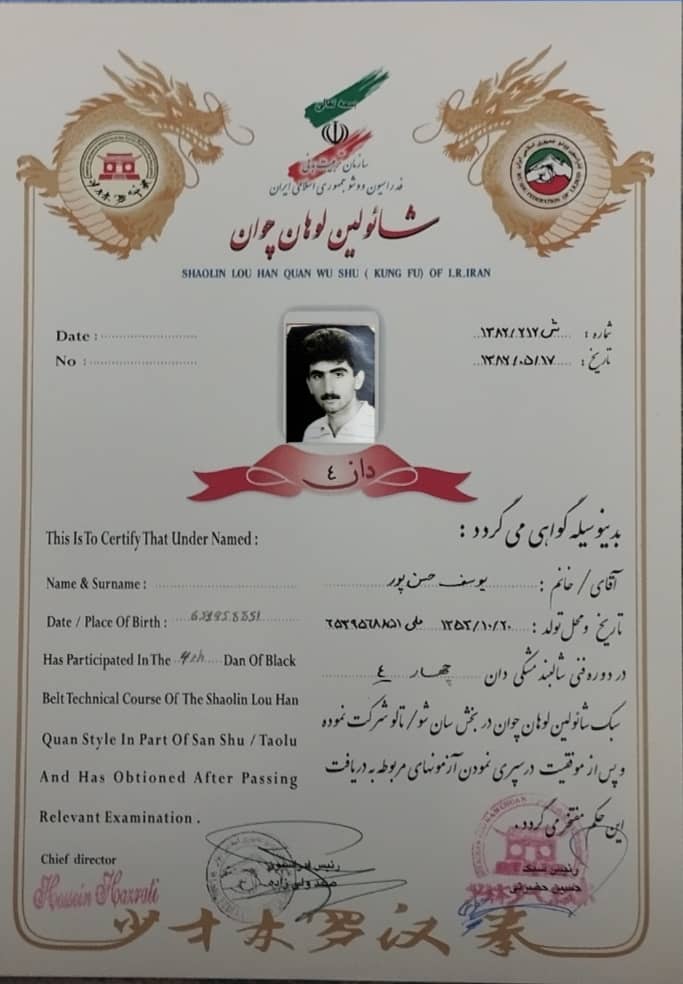 بسمه تعالی
سازمان تربیت بدنی
فدراسیون ووشو جمهوری اسلامی ایران
شائولین لوهان چوان
SHAOLIN LOU HAN QUAN WU SHU ( KUNG FU) OF I.R.IRAN
Date :
No :
شماره : ش ۱۳۸۲/۲۱۷
تاریخ : ۱۳۸۲/۰۵/۱۷
دان ٤
This Is To Certify That Under Named :
Name & Surname :
Date / Place Of Birth :
Has Participated In The 4th Dan Of Black
Belt Technical Course Of The Shaolin Lou Han
Quan Style In Part Of San Shu / Taolu
And Has Obtioned After Passing
Relevant Examination .
Chief director
Hossein Hazrati
بدینوسیله گواهی می گردد :
آقای / خانم : یوسف حسن پور
تاریخ و محل تولد : ۱۳۵۲/۱۰/۲۰ ملی
در دوره فنی شالبند مشکی دان چهار ٤
سبک شائولین لوهان چوان در بخش سان شو / تالو شرکت نموده
و پس از موفقیت در سپری نمودن آزمونهای مربوطه به دریافت
این حکم مفتخر می گردد.
رئیس فدراسیون
رئیس سبک